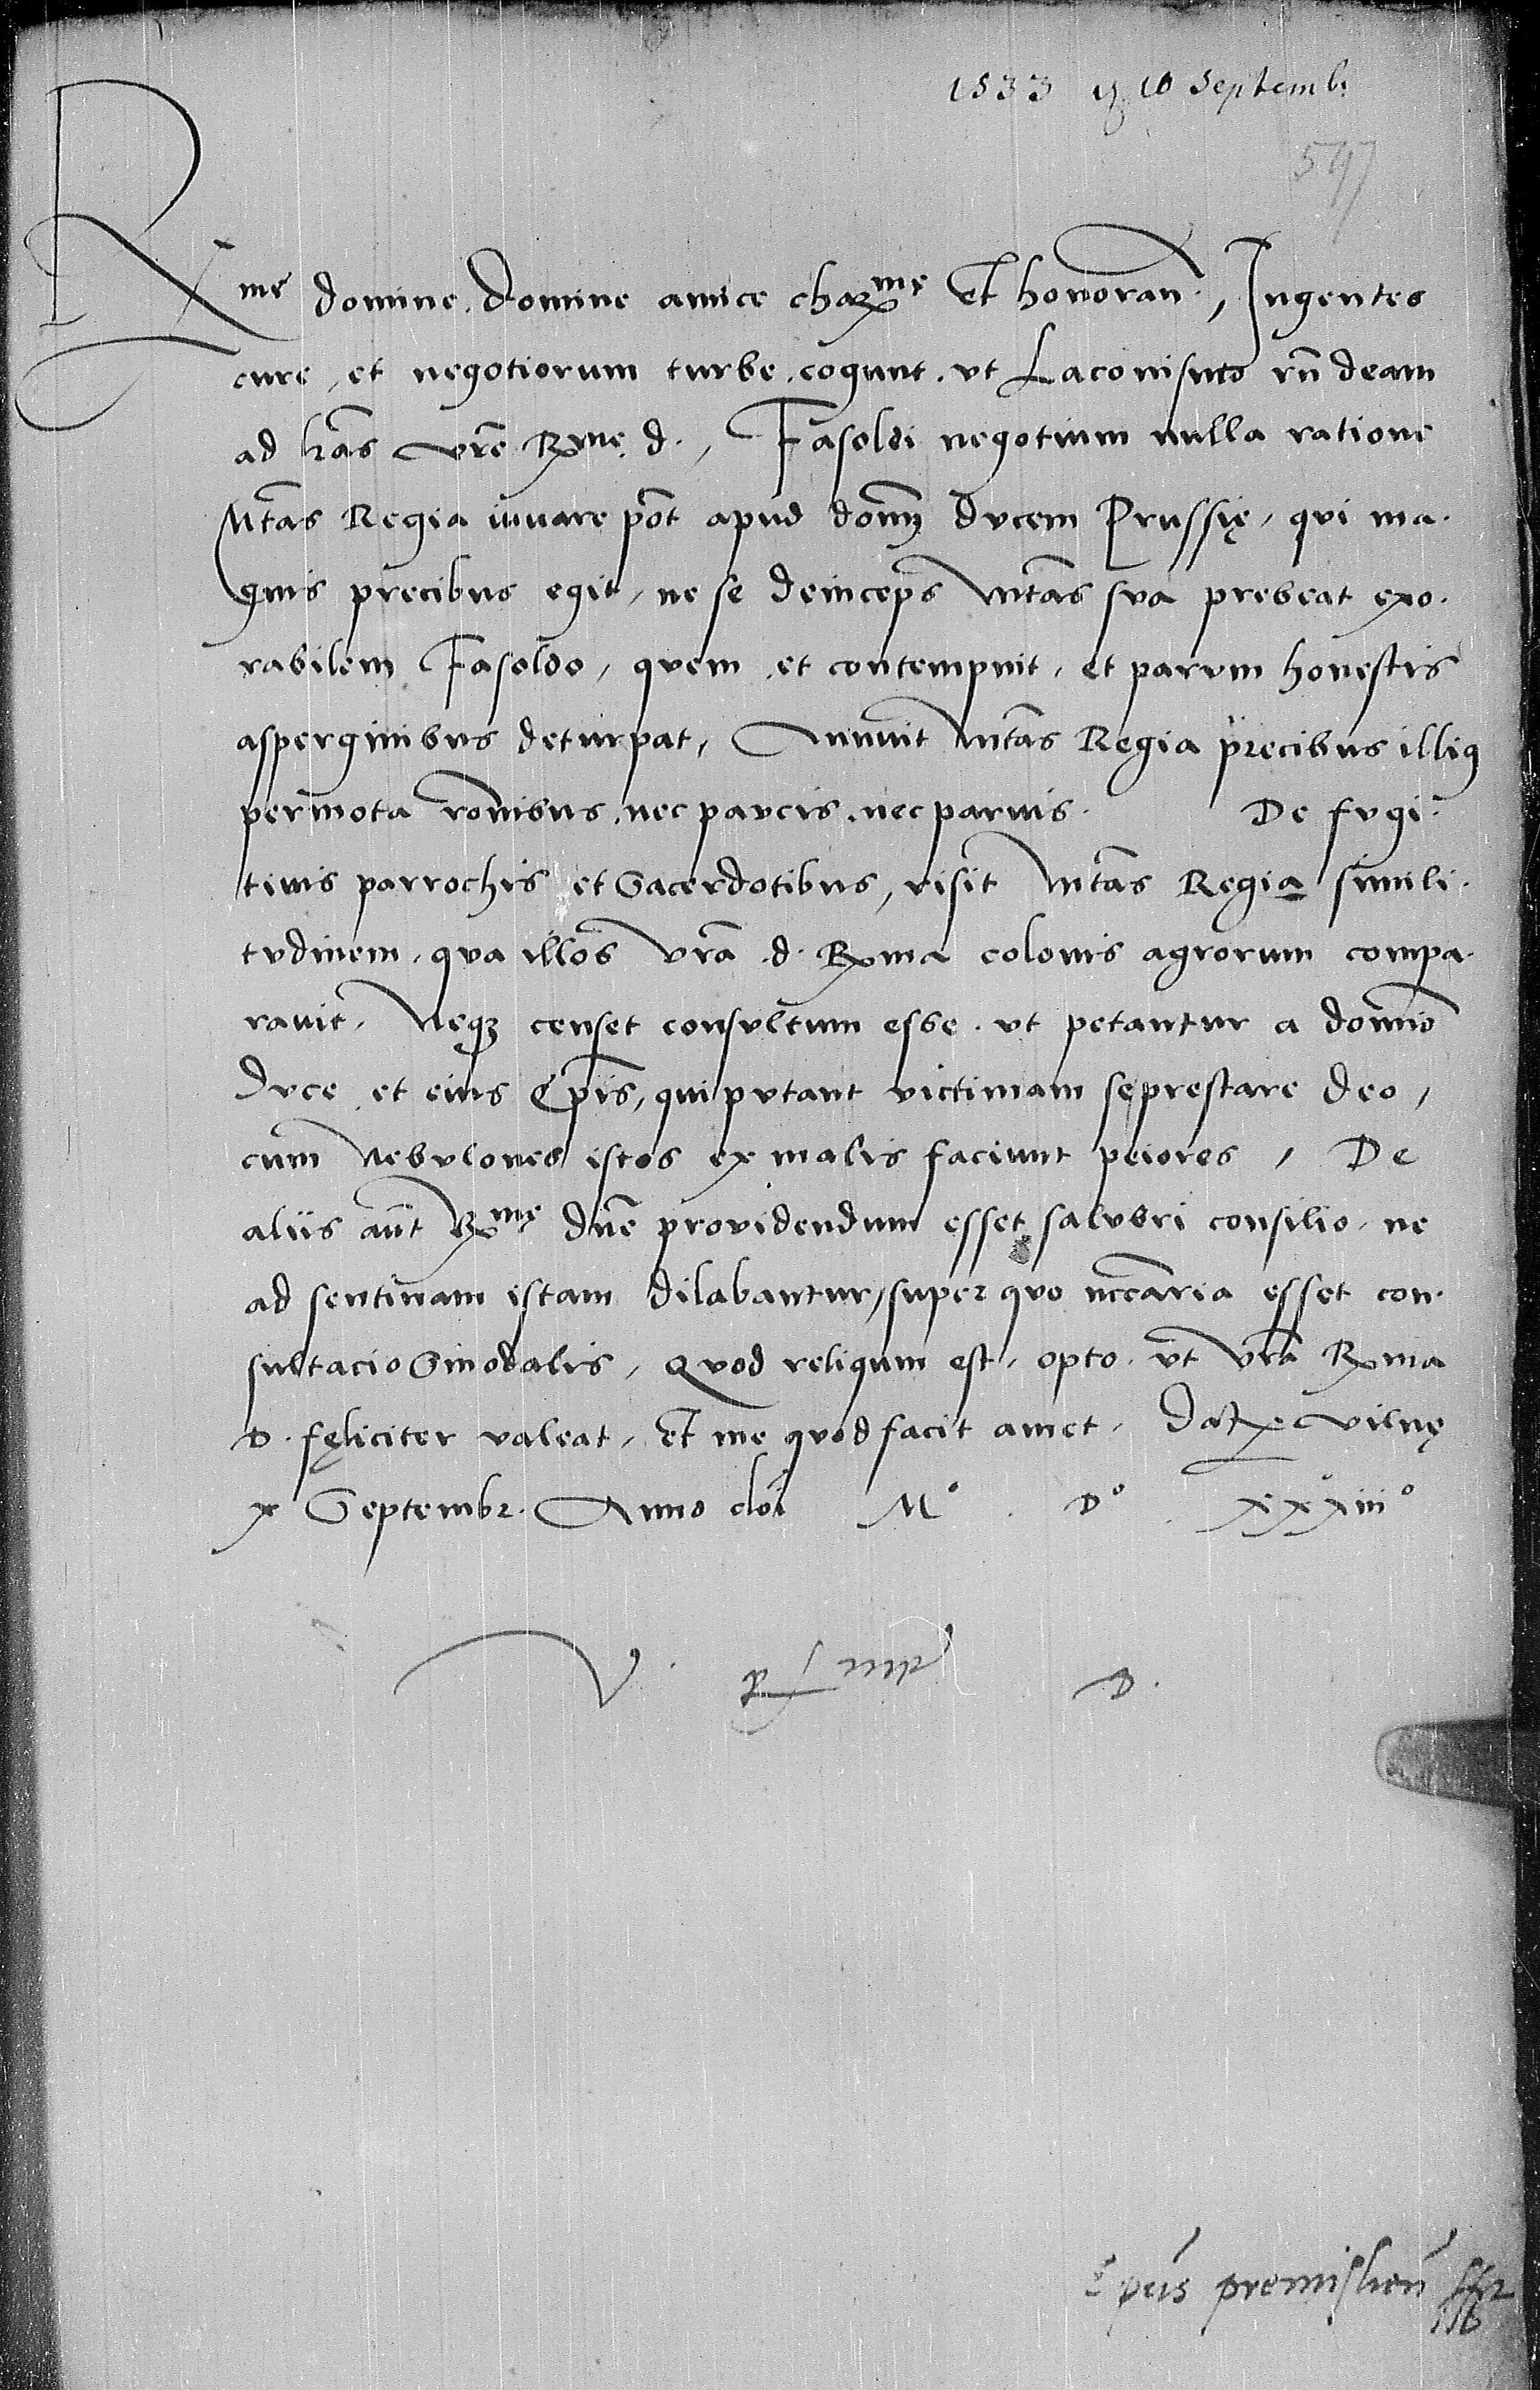 1533 10 Septemb
597
Rme domine. domine amice charme Et honoran., Ingentes
cure, et negotiorum turbe. cogunt. vt Laconismis rndeam
ad lras vre Rme. d., Fasoldi negotium nulla ratione
Mtas Regia iuuare pot apud domm ducem Prussię, qui ma.
gnis precibus egit, ne se deinceps Mtas sua prebeat exo.
rabilem Fasoldo, quem et contempnit, et parum honestis
asperginibus deturpat, Annuit Mtas Regia precibus illi9
permota ronibus. nec paucis. nec paruis. De fugi.
tiuis parrochis et Sacerdotibus, risit Mtas Regia simili.
tudinem, qua illos vra d. Rma colonis agrorum compa.
rauit, Neqз censet consultum esse. vt petantur a domino
duce et eius Epis, qui putant victimam se prestare deo,
cum Nebulones istos ex malis faciunt peiores, De
aliis aut Rme dne prouidendum esset salubri consilio, ne
ad sentinam istam dilabantur, super quo nccaria esset con.
sultacio Sinodalis, Quod reliqum est, opto. vt vra Rma
D. fęliciter valeat, Et me quod facit amet, Dat Vilnę
x Septembr. Anno doi Mo. Do. xxxiiio
V. R D.
Epus premislien